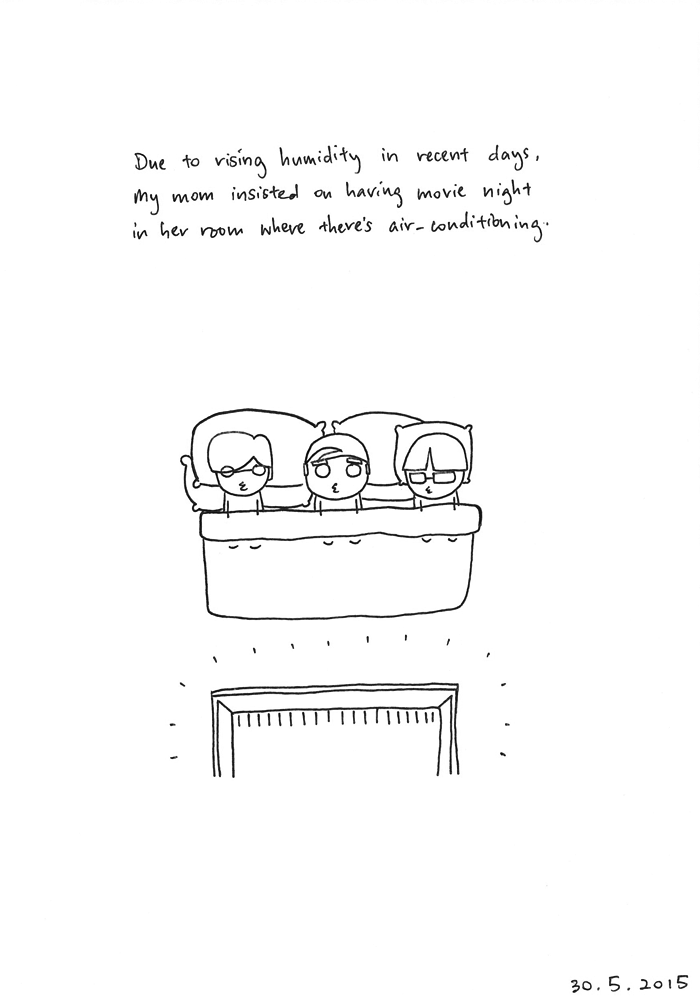 Due to rising humidity in recent days,
my mom insisted on having movie night
in her room where there's air-conditioning..
30.5.2015